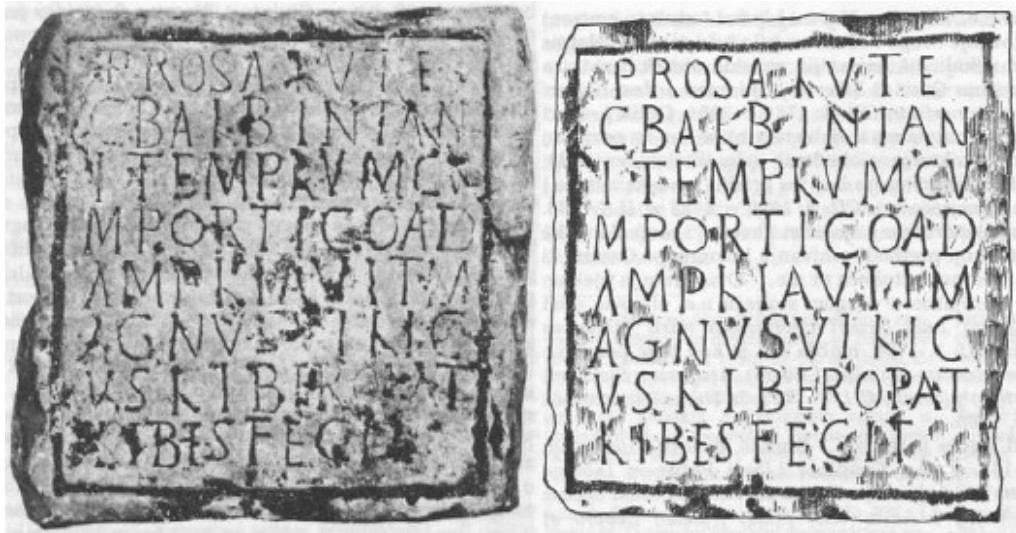 PROSALVTE
CBALBINTAN
ITEMPLVMC
MPORTICOAD
AMPLIAVITM
AGNVSVILIC
VSLIBEROPAT
LIBESFECIT
PROSALVTE
CBALBINTAN
ITEMPLVMCV
MPORTICOAD
AMPLIAVITM
AGNVSVILIC
VSLIBEROPAT
LIBESFECIT